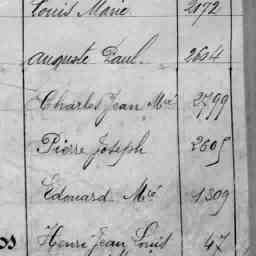 Louis Marie 2172
Auguste Paul. 2644
Charles Jean Mie 2799
Pierre Joseph 2605
Edouard Mie 1309
Henri Jean Louis 47